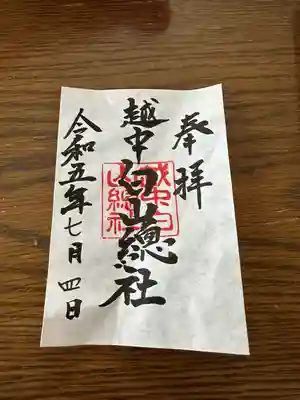 奉拝
越中白山總社
令和五年七月四日
越中白
山総社